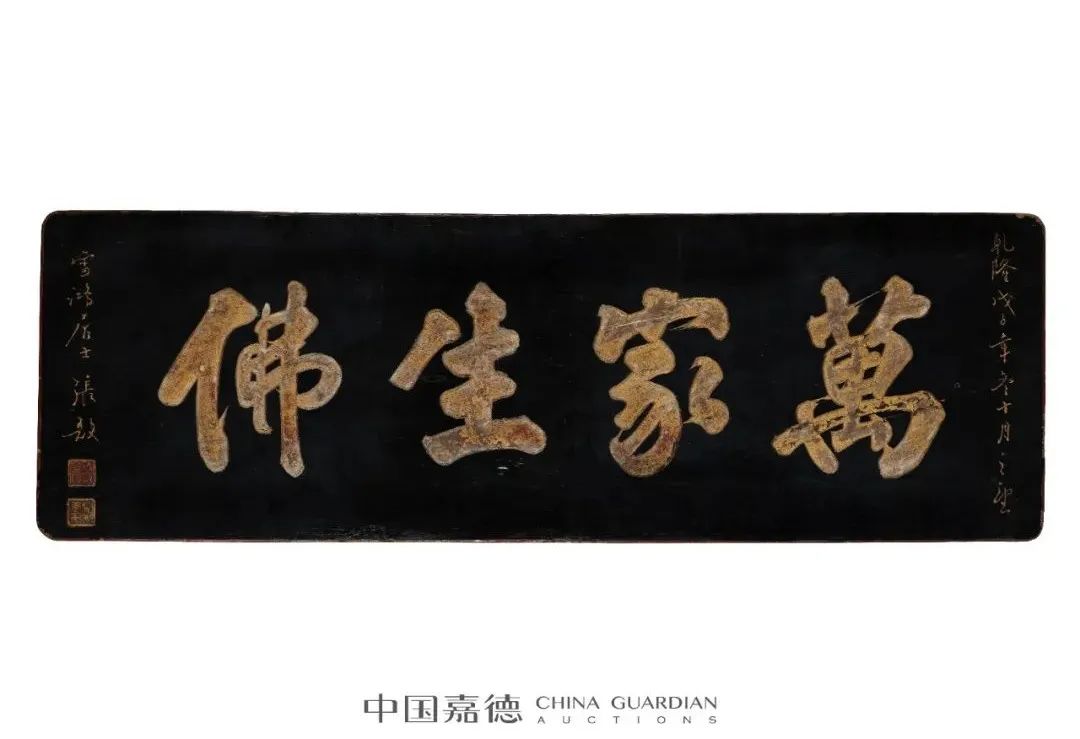 乾隆戊子年冬十月之望
萬家生佛
雪鴻居士張敔
中国嘉德 CHINA GUARDIAN
AUCTIONS